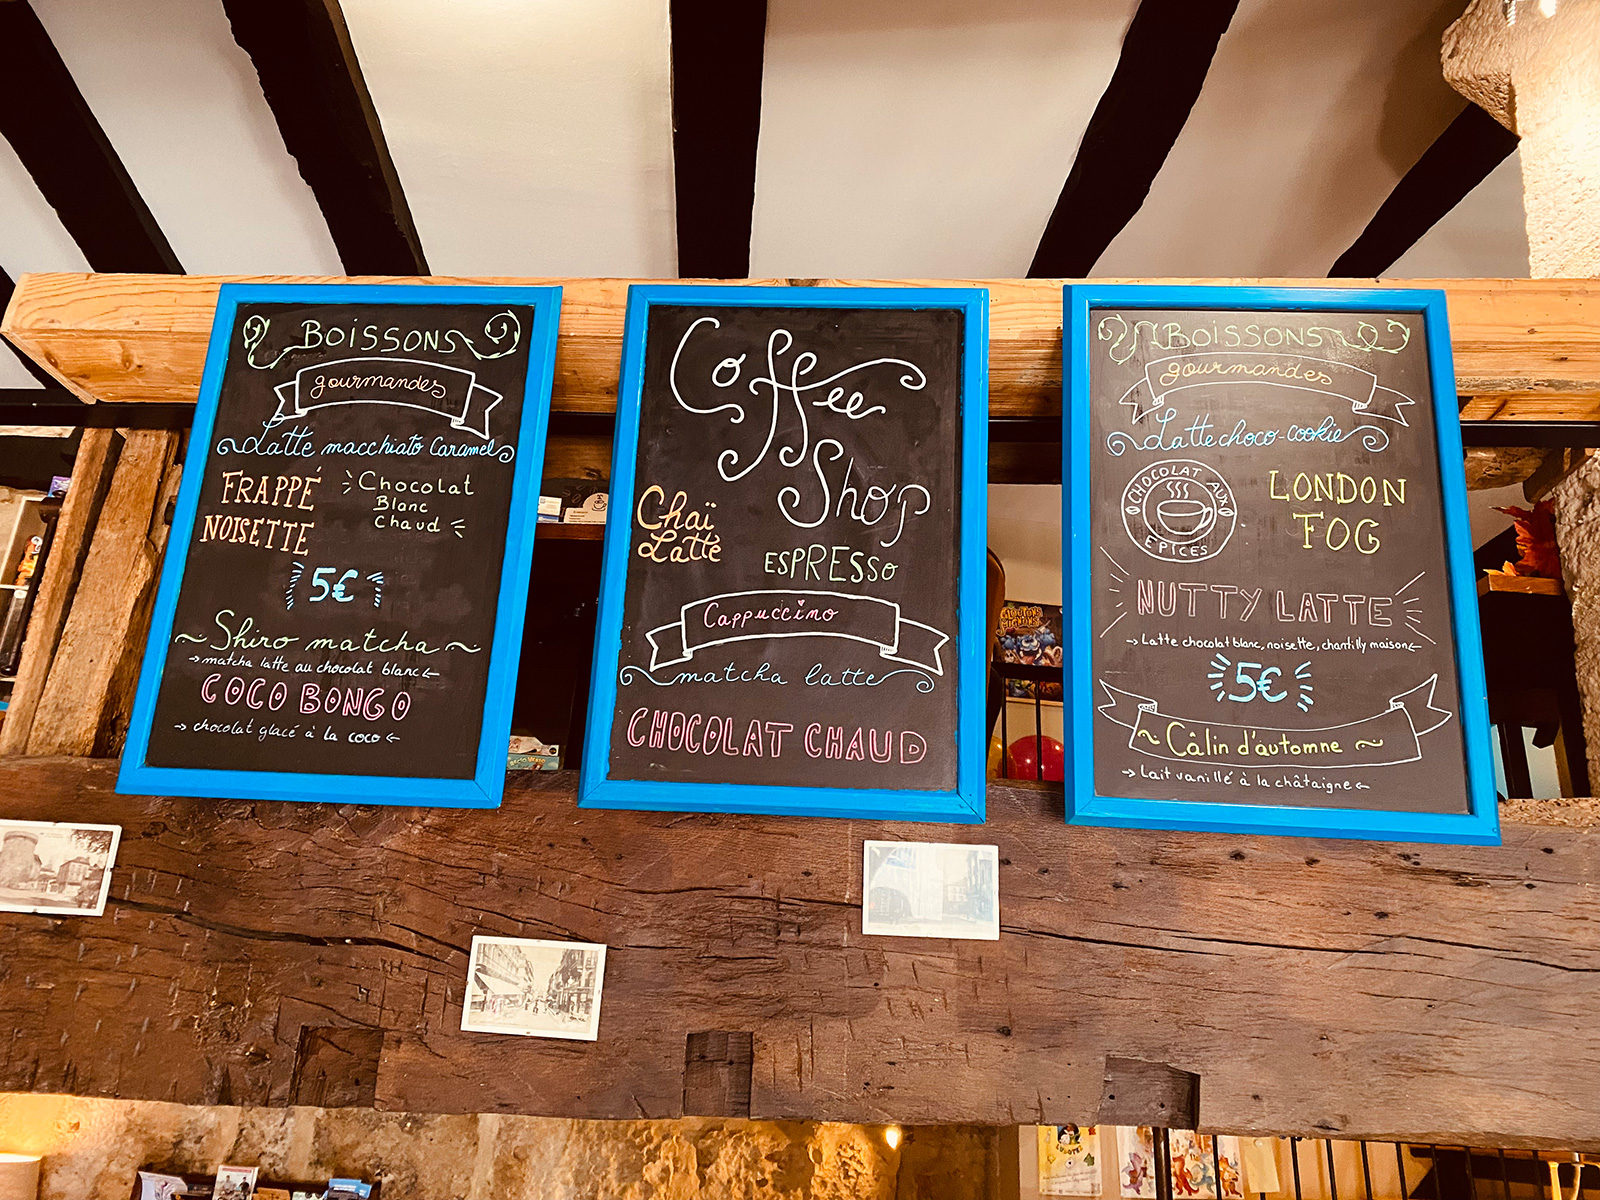 BOISSONS
gourmandes
Latte macchiato Caramel
FRAPPÉ
NOISETTE
Chocolat
Blanc
Chaud
5€
Shiro matcha
matcha latte au chocolat blanc
COCO BONGO
chocolat glacé à la coco
Coffee
Shop
Chaï
Latte
ESPRESSO
Cappuccino
matcha latte
CHOCOLAT CHAUD
BOISSONS
gourmandes
Latte choco-cookie
CHOCOLAT AUX
EPICES
LONDON
FOG
NUTTY LATTE
Latte chocolat blanc, noisette, chantilly maison
5€
Câlin d'automne
Lait vanillé à la châtaigne